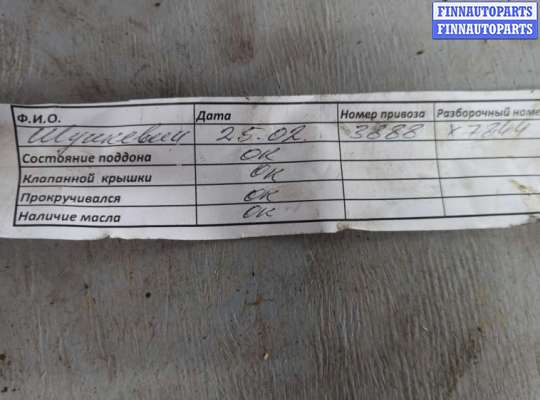 FINNAUTOPARTS
FINNAUTOPARTS
Ф.И.О. Дата Номер привоза Разборочный номе
Шушкевич 25.02. 3888 х7844
Состояние поддона ок
Клапанной крышки ок
Прокручивался ок
Наличие масла ок